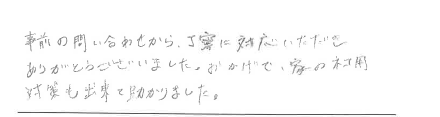 事前の問い合わせから、丁寧に対応いただき
ありがとうございました。おかげで、家の雨
対策も出来て助かりました。